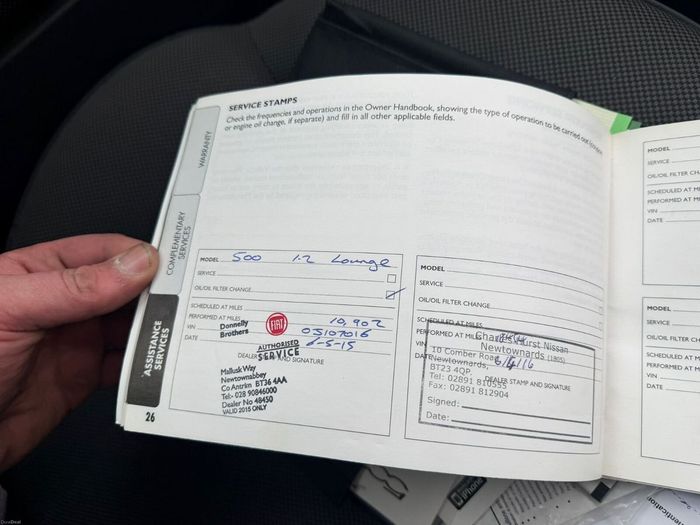 SERVICE STAMPS
Check the frequencies and operations in the Owner Handbook, showing the type of operation to be carried out
or engine oil change, if separate) and fill in all other applicable fields.
WARRANTY
COMPLEMENTARY
SERVICES
ASSISTANCE
SERVICES
MODEL 500 1.2 Lounge
SERVICE
OIL/OIL FILTER CHANGE
SCHEDULED AT MILES
PERFORMED AT MILES 10,902
VIN 05107016
DATE 6-5-15
Donnelly
Brothers
FIAT
AUTHORISED
SERVICE
DEALER STAMP AND SIGNATURE
Mallusk Way
Newtownabbey
Co Antrim BT36 4AA
Tel:- 028 90846000
Dealer No 48450
VALID 2015 ONLY
26
MODEL
SERVICE
OIL/OIL FILTER CHANGE
SCHEDULED AT MILES
PERFORMED AT MILES
VIN
DATE
Nissan
Newtownards (1805)
10 Comber Road
Newtownards,
BT23 4QP.
Tel: 02891 810555
Fax: 02891 812904
DEALER STAMP AND SIGNATURE
Signed:
Date:
MODEL
SERVICE
OIL/OIL FILTER CH
SCHEDULED AT MI
PERFORMED AT MI
VIN
DATE
MODEL
SERVICE
OIL/OIL FILTER CH
SCHEDULED AT M
PERFORMED AT M
VIN
DATE
iPhone